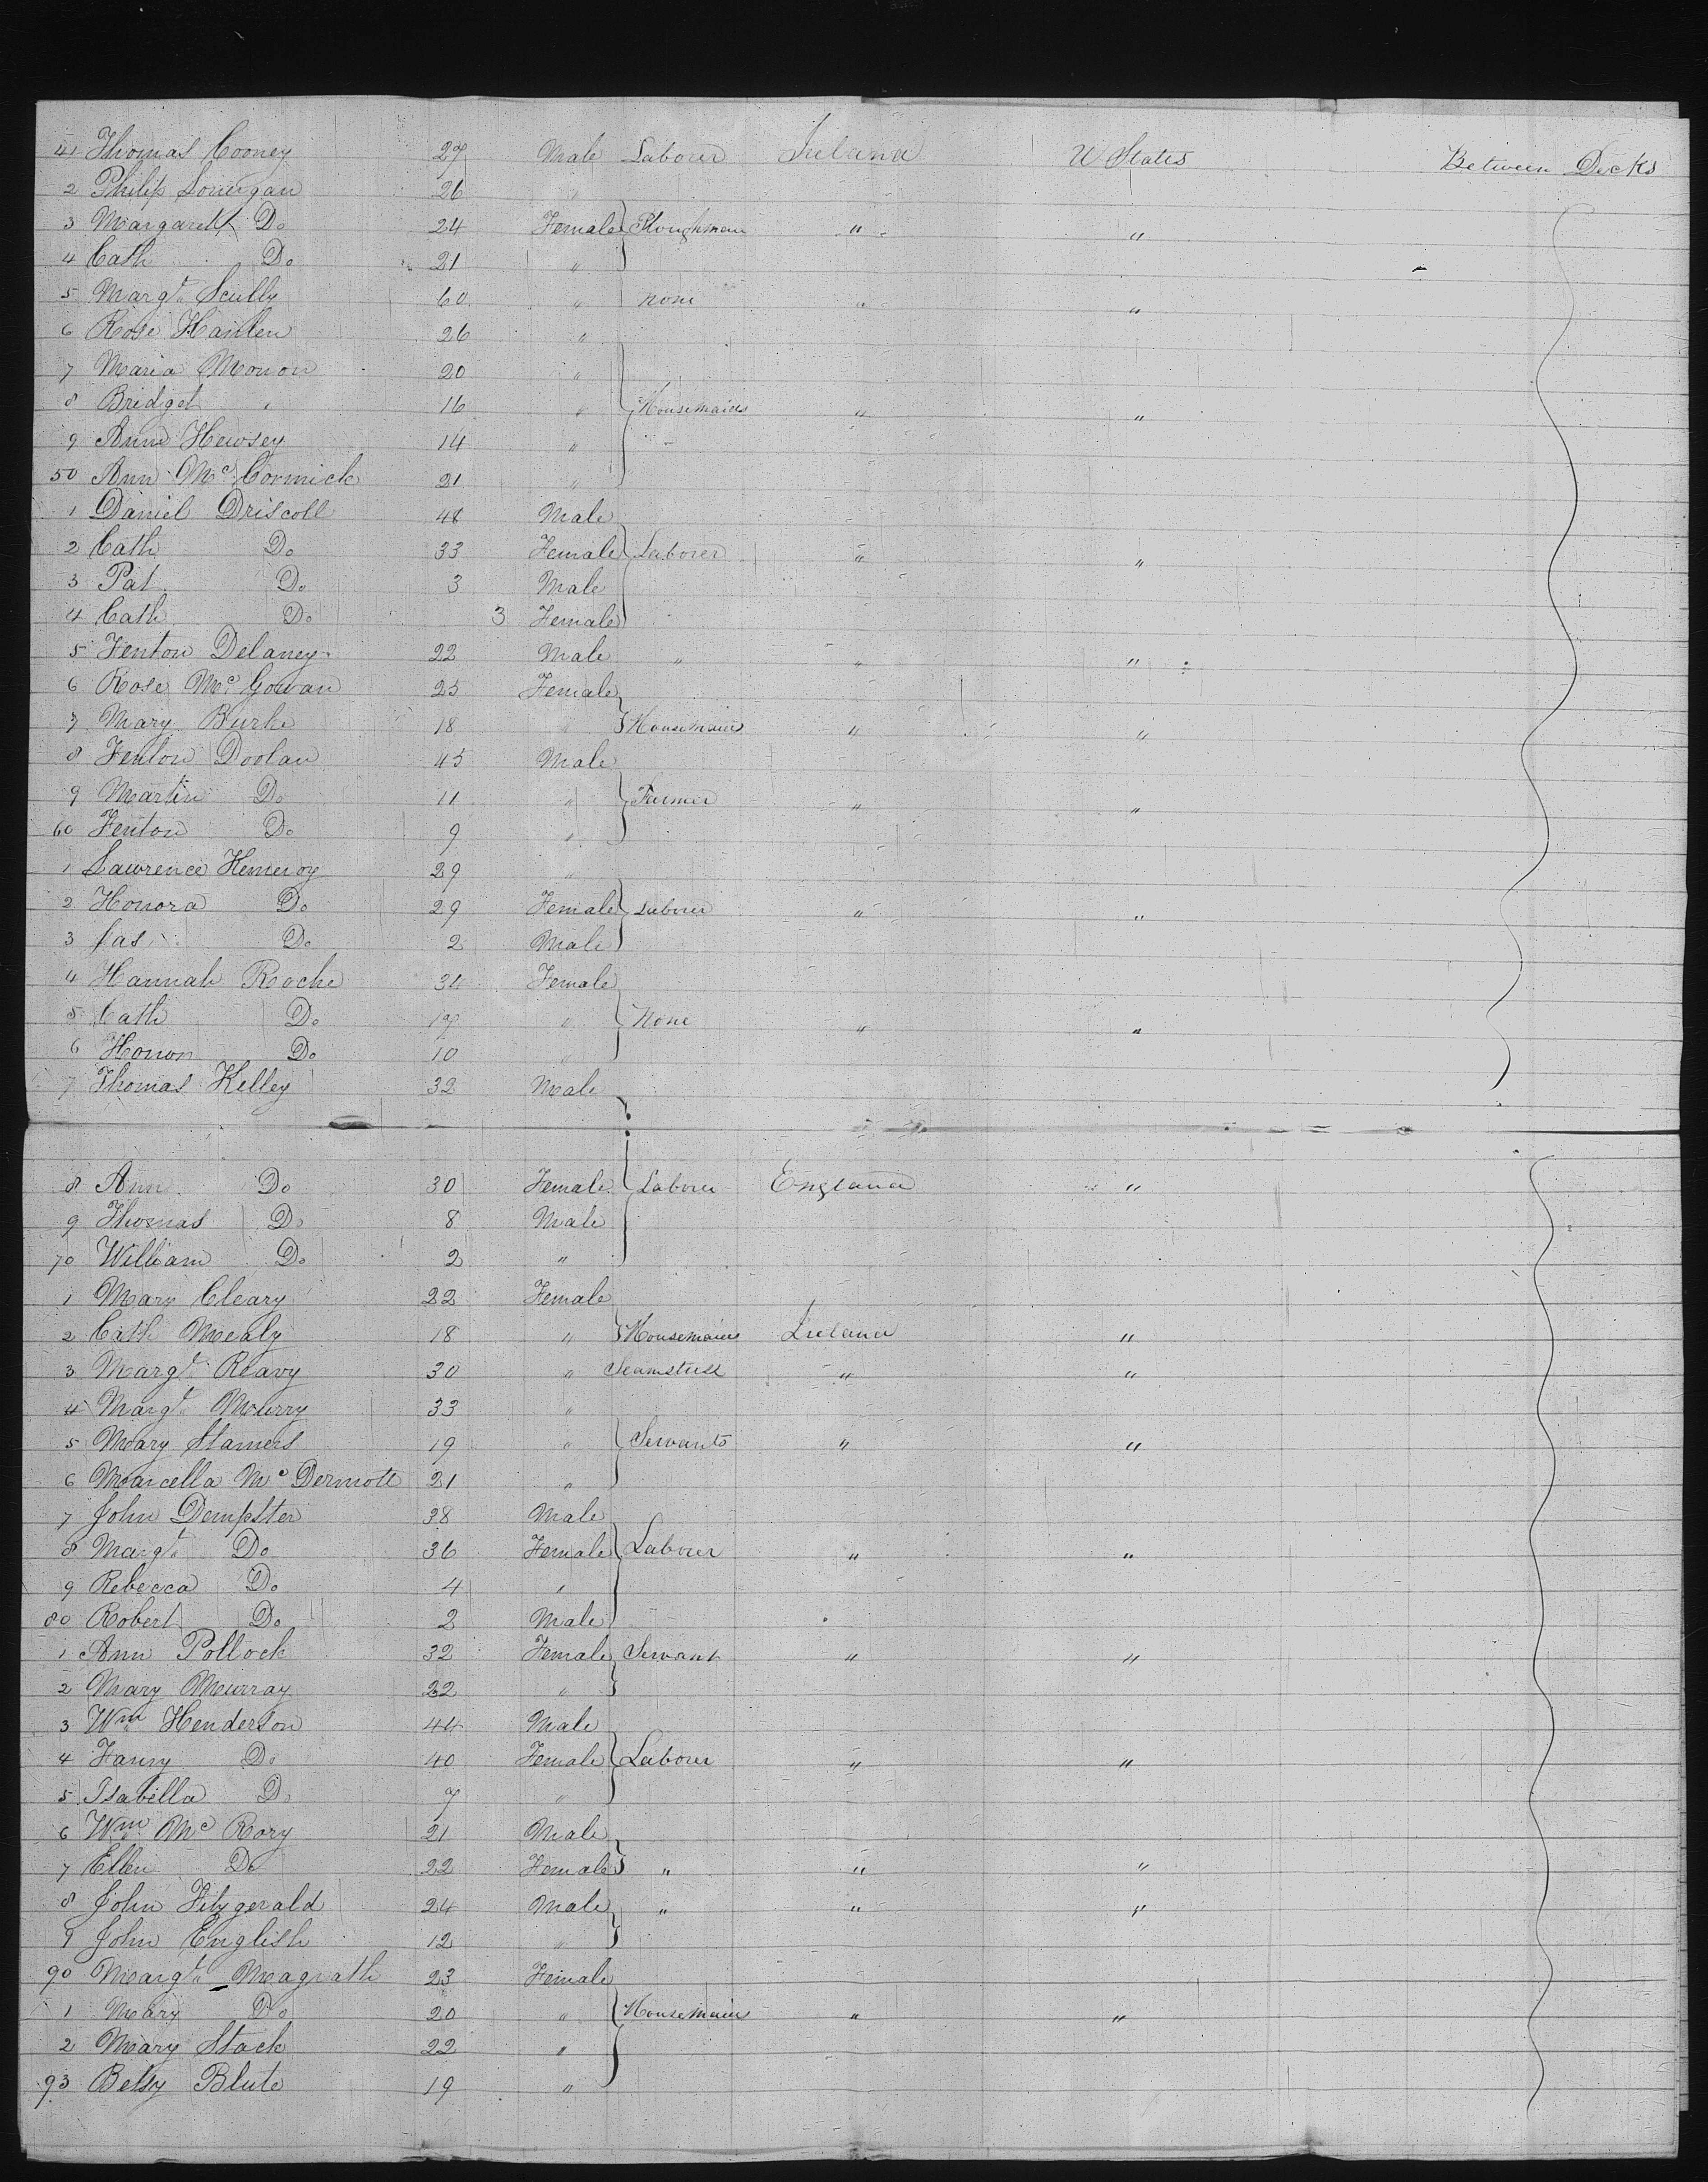 41 Thomas Cooney 27 Male Laborer Ireland U States Between Decks
2 Philip Lonergan 26 "
3 Margarett Do 24 Female Ploughman " "
4 Cath Do 21 "
5 Margt Scully 60 " none " "
6 Rose Hanlen 26 "
7 Maria Monon 20 "
8 Bridget " 16 " Housemaids " "
9 Ann Hewsey 14 "
50 Ann McCormick 21 "
1 Daniel Driscoll 48 Male
2 Cath Do 33 Female Laborer " "
3 Pat Do 3 Male
4 Cath Do 3 Female
5 Fenton Delaney 22 Male " " "
6 Rose McGowan 25 Female
7 Mary Burke 18 " Housemaids " "
8 Fenton Doolan 45 Male
9 Martin Do 11 " Farmer " "
60 Fenton Do 9 "
1 Lawrence 29 "
2 Honora Do 29 Female Laborer " "
3 Jas Do 2 Male
4 Hannah Roche 34 Female
5 Cath Do 17 " None " "
6 Honon Do 10 "
7 Thomas Kelley 32 Male
8 Ann Do 30 Female Laborer England "
9 Thomas Do 8 Male
70 William Do 2 "
1 Mary Cleary 22 Female
2 Cath Mealy 18 " Housemaids Ireland "
3 Margt Reavy 30 " Seamstress " "
4 Margt Murry 33 "
5 Mary Stamers 19 " Servants " "
6 Marcella McDermott 21 "
7 John Dempster 38 Male
8 Margt Do 36 Female Laborer " "
9 Rebecca Do 4 "
80 Robert Do 2 Male
1 Ann Pollock 32 Female Servant " "
2 Mary Murray 22 "
3 Wm Henderson 44 Male
4 Fanny Do 40 Female Laborer " "
5 Isabella Do 7 "
6 Wm McRory 21 Male
7 Ellen Do 22 Female " " "
8 John Fitzgerald 24 Male " " "
9 John English 12 "
90 Margt Magrath 23 Female
1 Mary Do 20 " Housemaids " "
2 Mary Stack 22 "
93 Betsy Blute 19 "